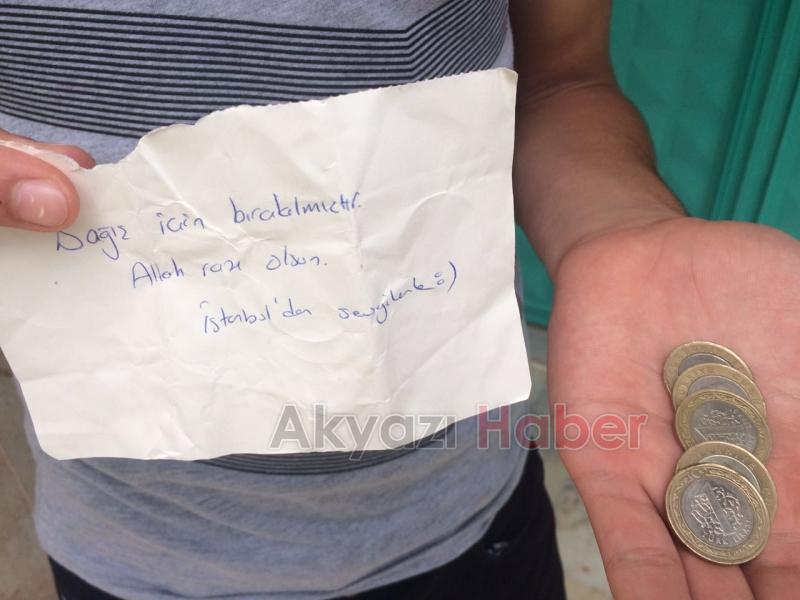 Bağış için bırakılmıştır.
Allah razı olsun.
İstanbul'dan sevgilerle :)
Akyazı Haber
TÜRK LİRASI